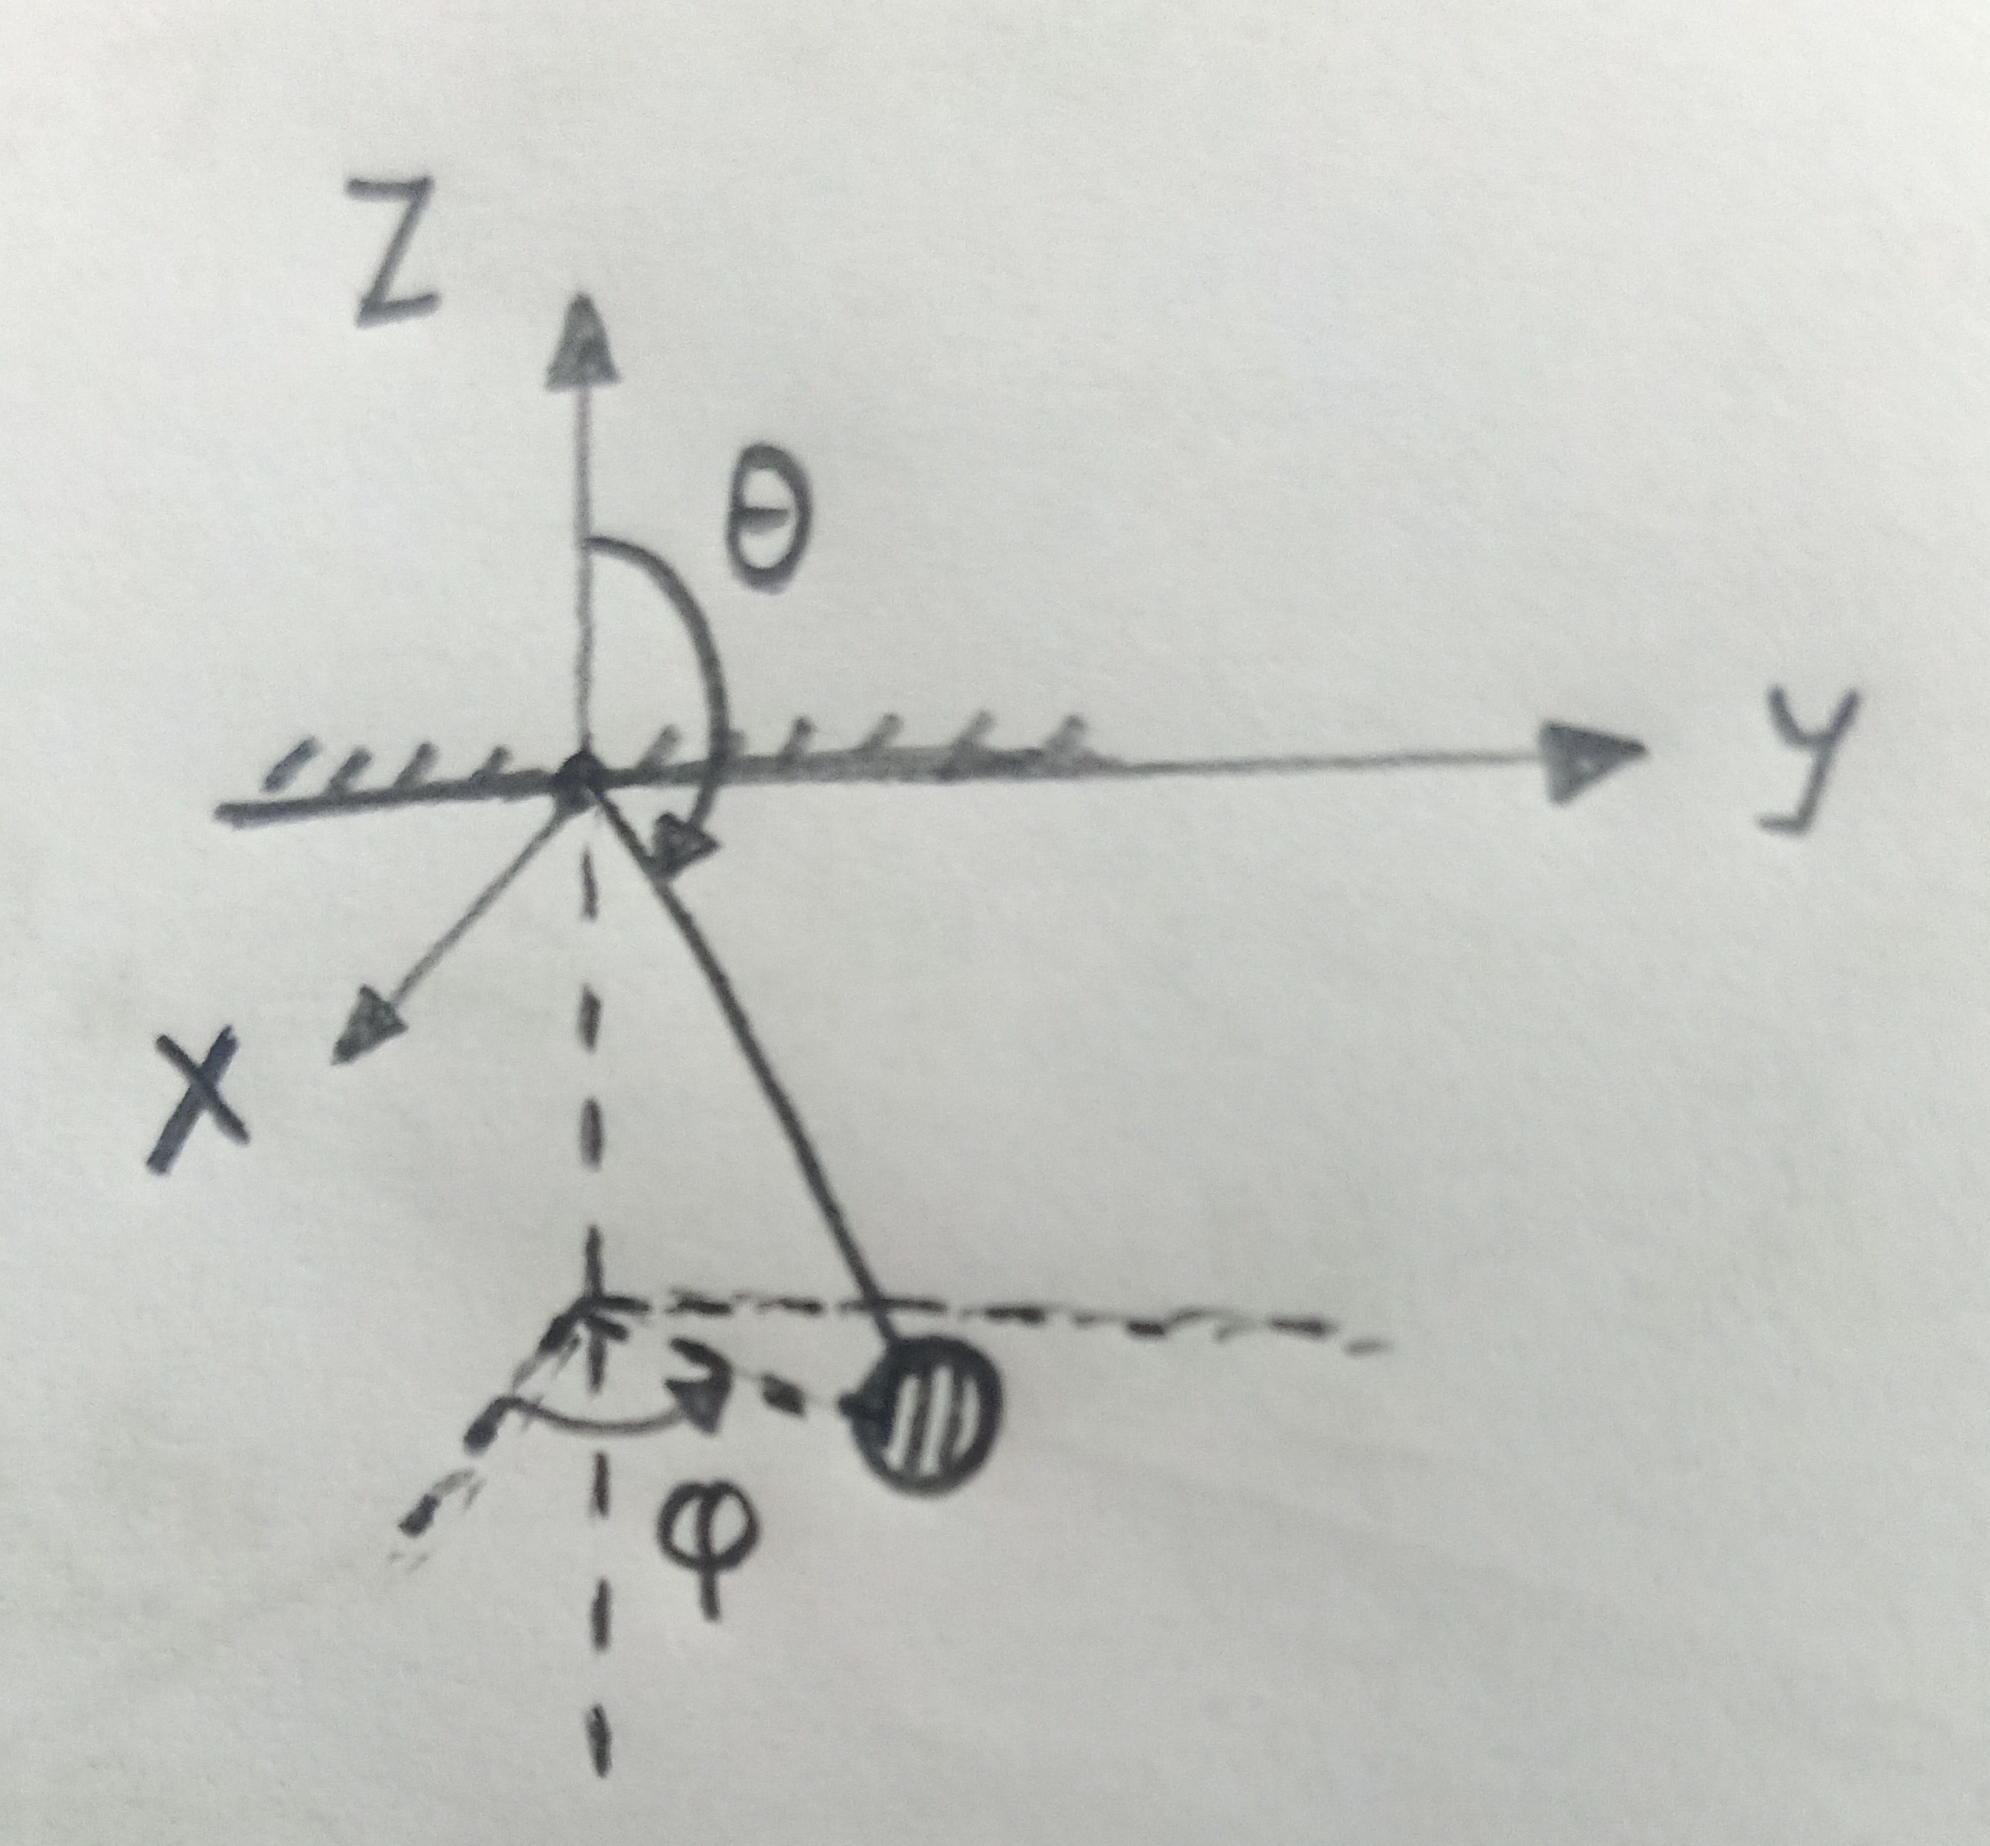 Z
θ
y
x
φ